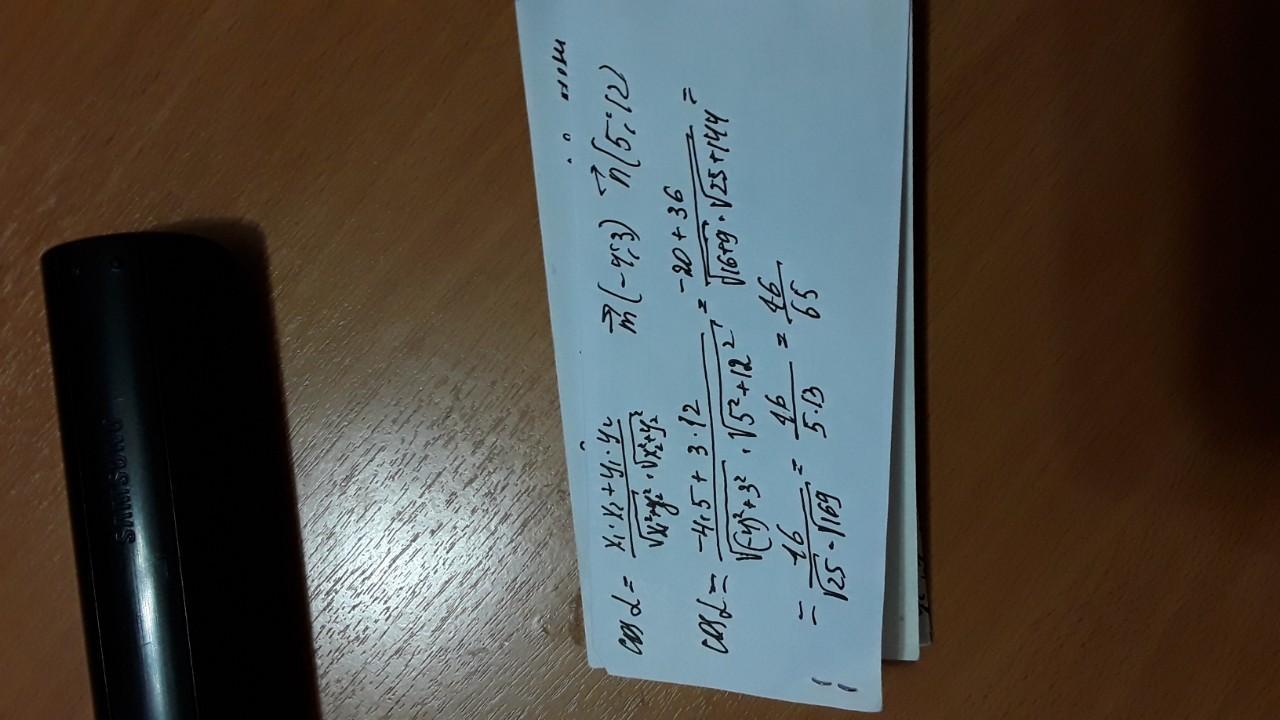 cos α = x₁·x₂+y₁·y₂ / √x₁²+y₁² · √x₂²+y₂² m⃗(-4;3) n⃗(5;12)
cos α = -4·5+3·12 / √(-4)²+3² · √5²+12² = -20+36 / √16+9 · √25+144 =
= 16 / √25 · √169 = 16 / 5·13 = 16 / 65
SAMSUNG